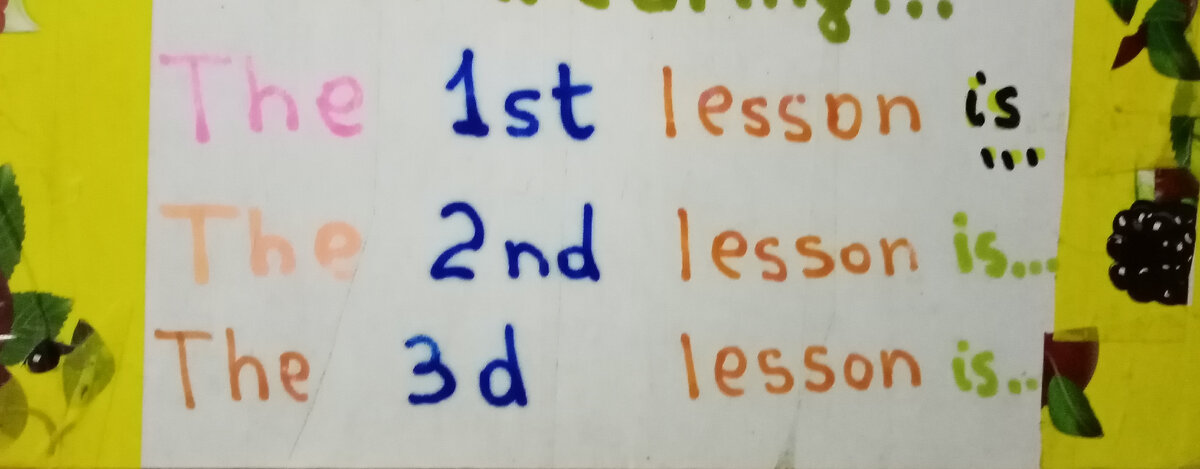 The 1st lesson is...
The 2nd lesson is...
The 3d lesson is...